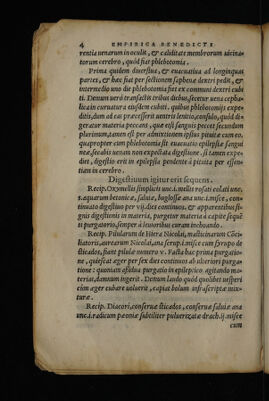 4 EMPIRICA BENEDICTI
rentia uenarum in oculis, & ealiditate membrorum uicina-
torum cerebro, quòd fiat phlebotomia.
Prima quidem diuersiua, & euacuatiua ad longinquas
partes, & hæc fiat per sectionem saphenæ dextri pedis, &
intermedio uno die phlebotomia fiat ex communi dextri cubi
ti. Demum uerò transactis tribus diebus, secetur uena cepha-
lica in curuatura eiusdem cubiti, quibus phlebotomijs expe-
ditis, dum ad eas præcesserit uentris lenitio, consulo, quòd di-
geratur materia peccans, quæ est sanguis peccat secundum
plurimum, tamen est per admixtionem ipsius pituitæ cum eo.
quapropter cum phlebotomia sit euacuatio epilepsiæ sangui
neæ, secabis uenam non expectata digestione. si tamen expe-
dies, digestio erit in epilepsia pendente à pituita per essen-
tiam in cerebro.
Digestiuum igitur erit sequens.
Recip. Oxymellis simplicis unc. i. mellis rosati colati unc.
s. aquarum betonicæ, saluiæ, buglossæ ana unc. i. misce, con-
tinuato digestiuo per vij. dies continuos, & apparentibus si-
gnis digestionis in materia, purgetur materia à capite seque
ti purgatorio, semper à leuioribus curam inchoando.
Recip. Pilularum de Hiera Nicolai, mastichinarum Cõci-
liatoris, aurearum Nicolai, ana scrup. i. misce cum syrupo de
sticados, fiant pilulæ numero v. Facta hac prima purgatio-
ne, quiescat æger per sex dies continuos ab uberiori purga-
tione: quoniam assidua purgatio in epileptico. agitando ma-
terias, damnum ingerit. Demum laudo quòd quolibet uesperi
cum æger cubare uoluerit, capiat bolum infrascriptæ mix-
turæ.
Recip. Diacori, conseruæ sticados, conseruæ saluiæ ana
unc. i. radicum pæoniæ subtiliter pulueriz atæ drach. ij. misce
cum